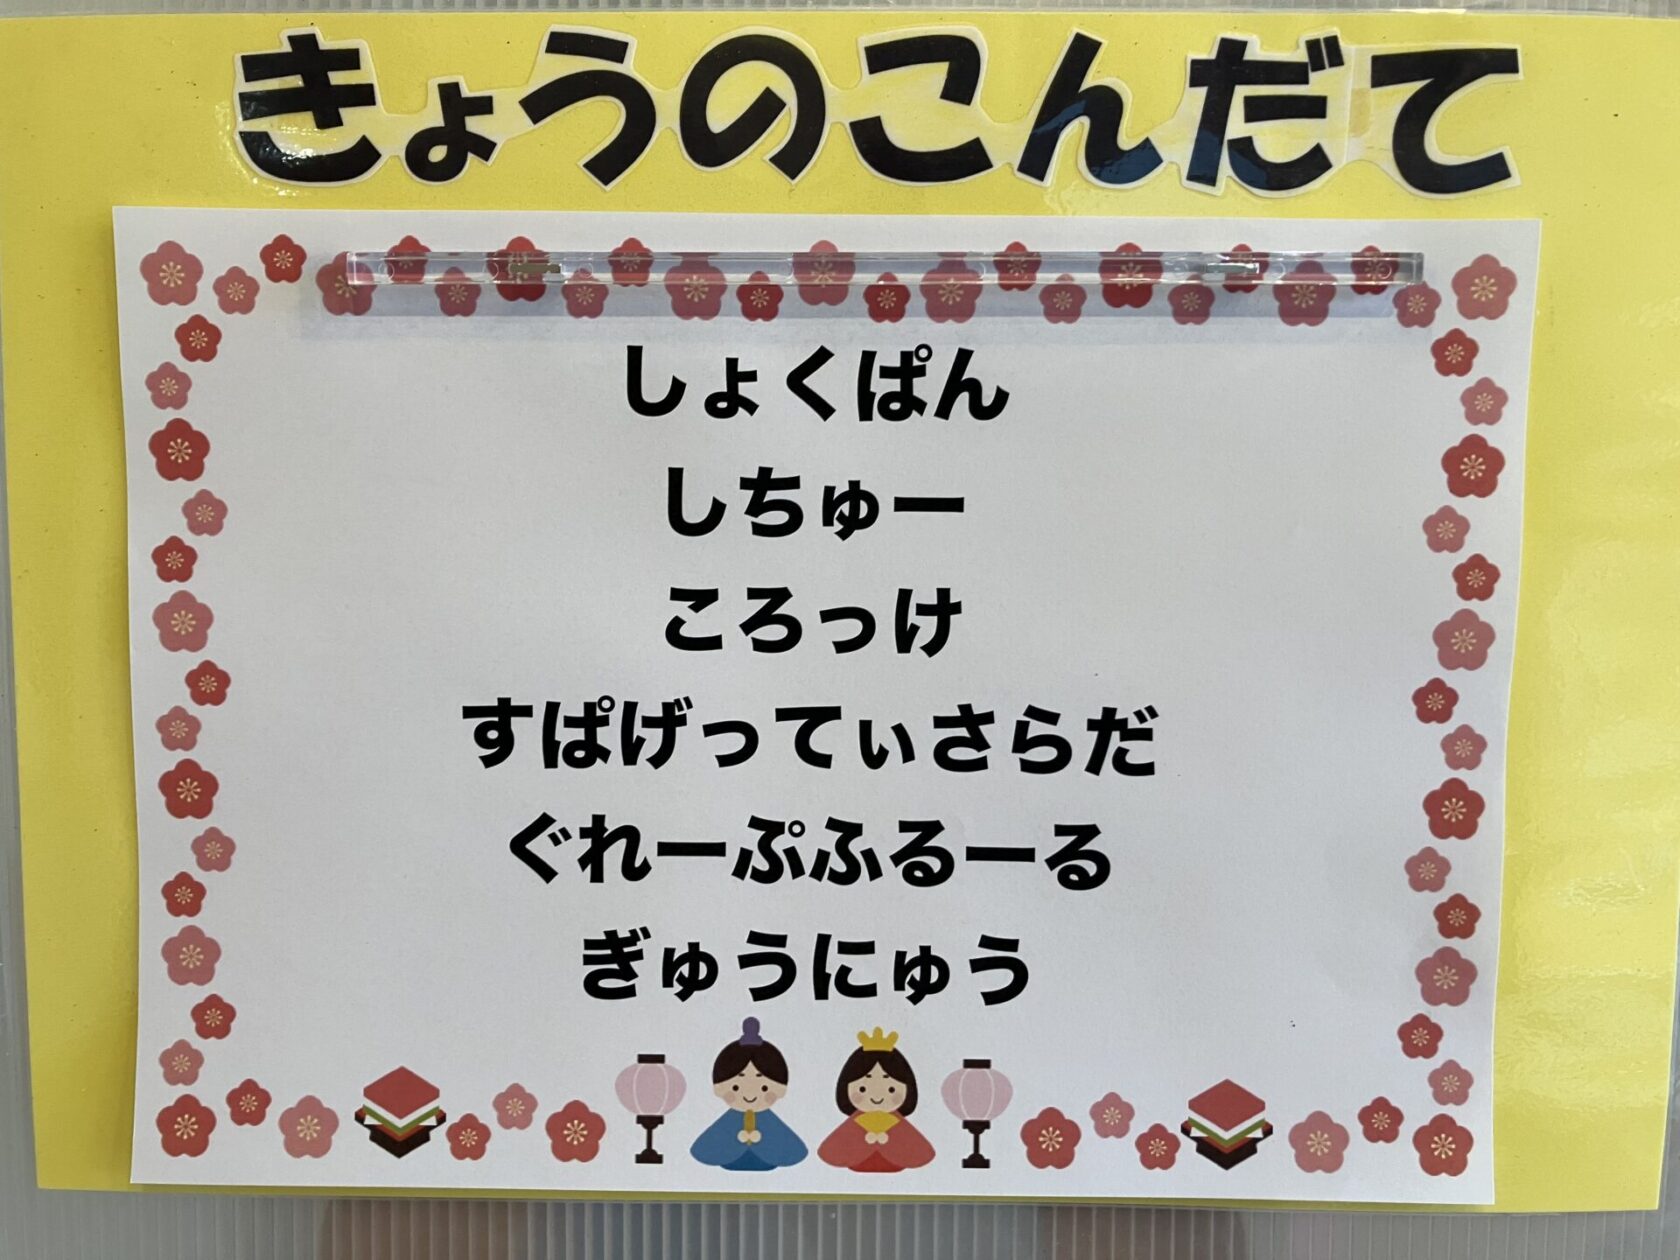 きょうのこんだて
しょくぱん
しちゅー
ころっけ
すぱげってぃさらだ
ぐれーぷふるーる
ぎゅうにゅう